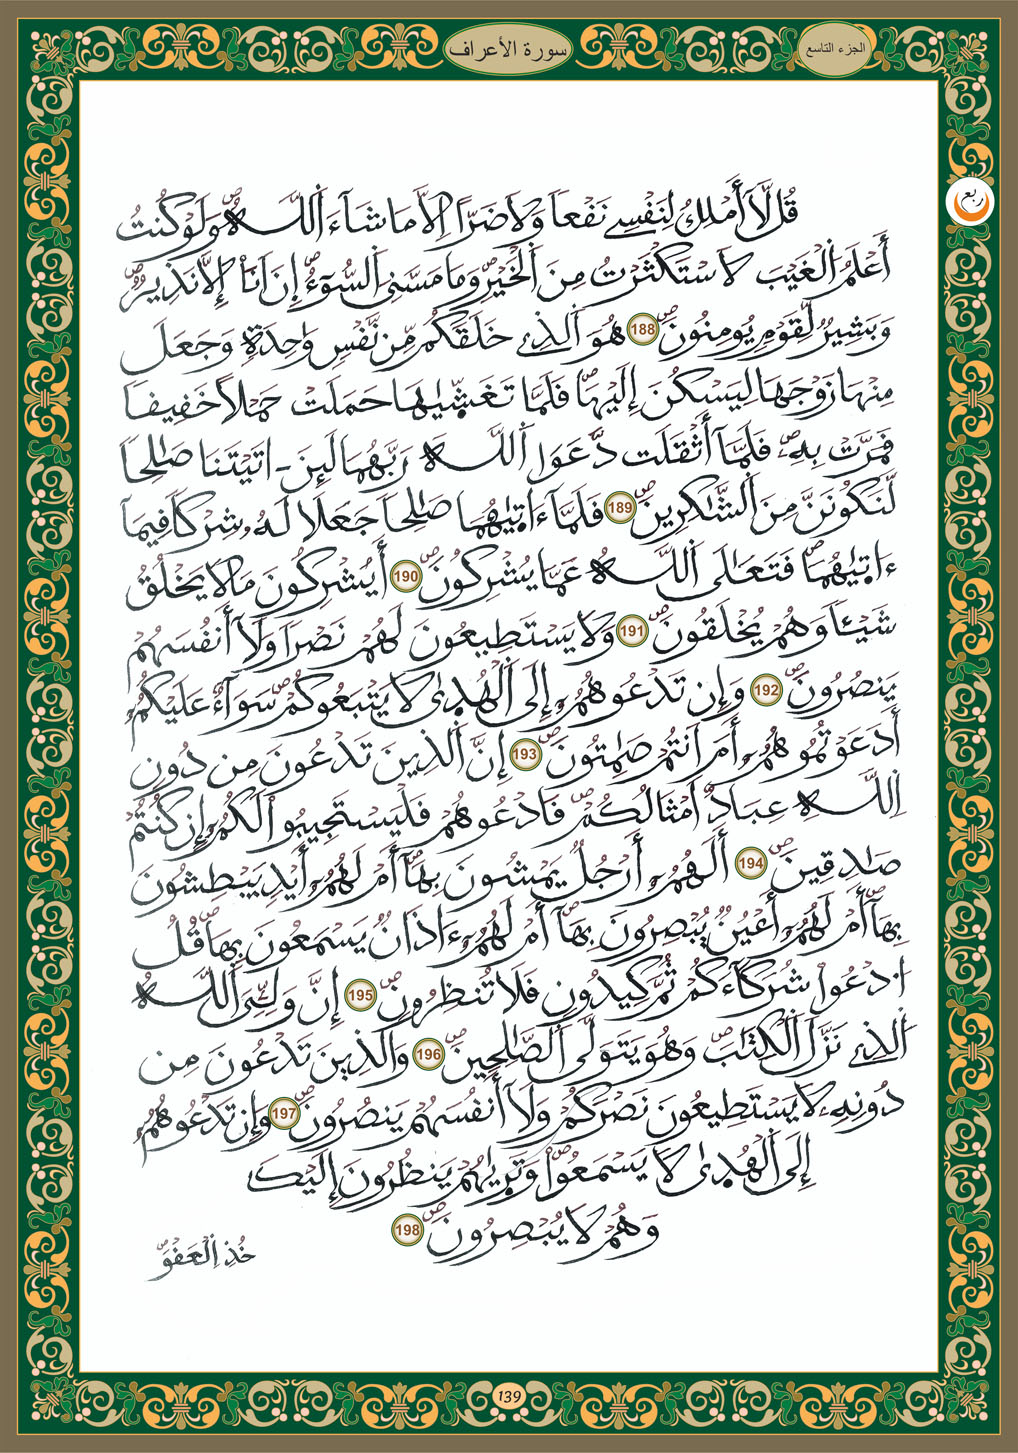 الجزء التاسع
سورة الأعراف
ربع
قُل لَّآ أَمْلِكُ لِنَفْسِے نَفْعاً وَلَا ضَرّاً اِلَّا مَا شَآءَ اَ۬للَّهُۖ وَلَوْ كُنتُ
أَعْلَمُ اُ۬لْغَيْبَ لَاسْتَكْثَرْتُ مِنَ اَ۬لْخَيْرِۖ وَمَا مَسَّنِيَ اَ۬لسُّوٓءُۖ إِنَ اَنَا إِلَّا نَذِيرٞۖ
وَبَشِيرٞ لِّقَوْمٖ يُومِنُونَۖ 188 هُوَ اَ۬لذِے خَلَقَكُم مِّن نَّفْسٖ وَٰحِدَةٖ وَجَعَلَ
مِنْهَا زَوْجَهَا لِيَسْكُنَ إِلَيْهَاۖ فَلَمَّا تَغَشّ۪يٰهَا حَمَلَتْ حَمْلاً خَفِيفاٗ
فَمَرَّتْ بِهِۦۖ فَلَمَّآ أَثْقَلَت دَّعَوَا اَ۬للَّهَ رَبَّهُمَا لَئِنَ اٰتَيْتَنَا صَٰلِحاٗ
لَّنَكُونَنَّ مِنَ اَ۬لشَّٰكِرِينَۖ 189 فَلَمَّآ ءَات۪يٰهُمَا صَٰلِحاٗ جَعَلَا لَهُۥ شِرْكاٗ فِيمَآ
ءَات۪يٰهُمَاۖ فَتَعَٰلَى اَ۬للَّهُ عَمَّا يُشْرِكُونَۖ 190 أَيُشْرِكُونَ مَا لَا يَخْلُقُ
شَيْـٔاٗ وَهُمْ يُخْلَقُونَۖ 191 وَلَا يَسْتَطِيعُونَ لَهُمْ نَصْراٗ وَلَآ أَنفُسَهُمْ
يَنصُرُونَۖ 192 وَإِن تَدْعُوهُمُۥٓ إِلَى اَ۬لْهُد۪ىٰ لَا يَتْبَعُوكُمْۖ سَوَآءٌ عَلَيْكُمُۥٓ
أَدَعَوْتُمُوهُمُۥٓ أَمَ اَنتُمْ صَٰمِتُونَۖ 193 إِنَّ اَ۬لذِينَ تَدْعُونَ مِن دُونِ
اِ۬للَّهِ عِبَادٌ اَمْثَالُكُمْۖ فَادْعُوهُمْ فَلْيَسْتَجِيبُوا لَكُمُۥٓ إِن كُنتُمْ
صَٰدِقِينَۖ 194 أَلَهُمُۥٓ أَرْجُلٞ يَمْشُونَ بِهَآۖ أَمْ لَهُمُۥٓ أَيْدٖ يَبْطِشُونَ
بِهَآۖ أَمْ لَهُمُۥٓ أَعْيُنٞ يُبْصِرُونَ بِهَآۖ أَمْ لَهُمُۥٓ ءَاذَانٞ يَسْمَعُونَ بِهَاۖ قُلُ
اُ۟دْعُوا شُرَكَآءَكُمْ ثُمَّ كِيدُونِ فَلَا تُنظِرُونِۖ 195 إِنَّ وَلِـِّۧيَ اَ۬للَّهُ
اُ۬لذِے نَزَّلَ اَ۬لْكِتَٰبَۖ وَهُوَ يَتَوَلَّى اَ۬لصَّٰلِحِينَۖ 196 وَالذِينَ تَدْعُونَ مِن
دُونِهِۦ لَا يَسْتَطِيعُونَ نَصْرَكُمْ وَلَآ أَنفُسَهُمْ يَنصُرُونَۖ 197 وَإِن تَدْعُوهُمُۥٓ
إِلَى اَ۬لْهُد۪ىٰ لَا يَسْمَعُواۖ وَتَر۪يٰهُمْ يَنظُرُونَ إِلَيْكَ
وَهُمْ لَا يُبْصِرُونَۖ 198
خُذِ اِ۬لْعَفْوَ
139